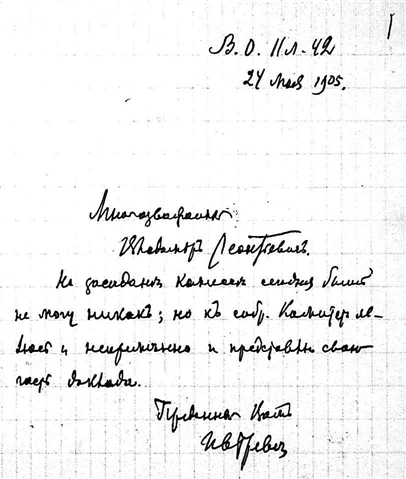 В. О. 11 л. 42
24 мая 1905.
Многоуважаемый
Владимир Леонтьевич.
На заседании комиссии сегодня быть
не могу никакъ; но къ собр. Комитета яв-
люсь и непременно и представлю свою
часть доклада.
Преданный Вамъ
ИвГревс